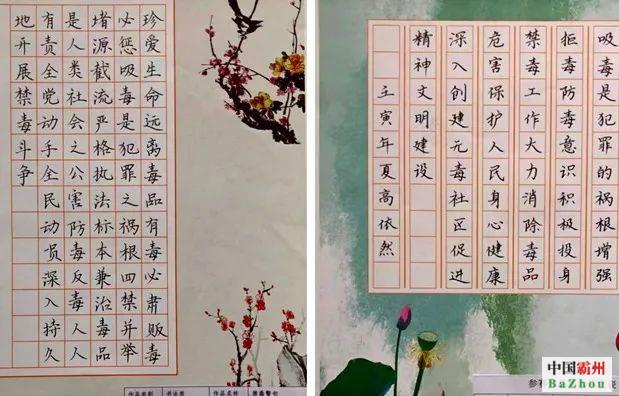 珍爱生命远离毒品有毒必肃贩毒
必惩吸毒是犯罪之祸根四禁并举
堵源截流严格执法标本兼治毒品
是人类社会之公害防毒反毒人人
有责全党动手全民动员深入持久
地开展禁毒斗争
作品类别 书法类 作品名称 禁毒警句
吸毒是犯罪的祸根增强
拒毒防毒意识积极投身
禁毒工作大力消除毒品
危害保护人民身心健康
深入创建无毒社区促进
精神文明建设
壬寅年夏高依然
中国霸州
BaZhou.com